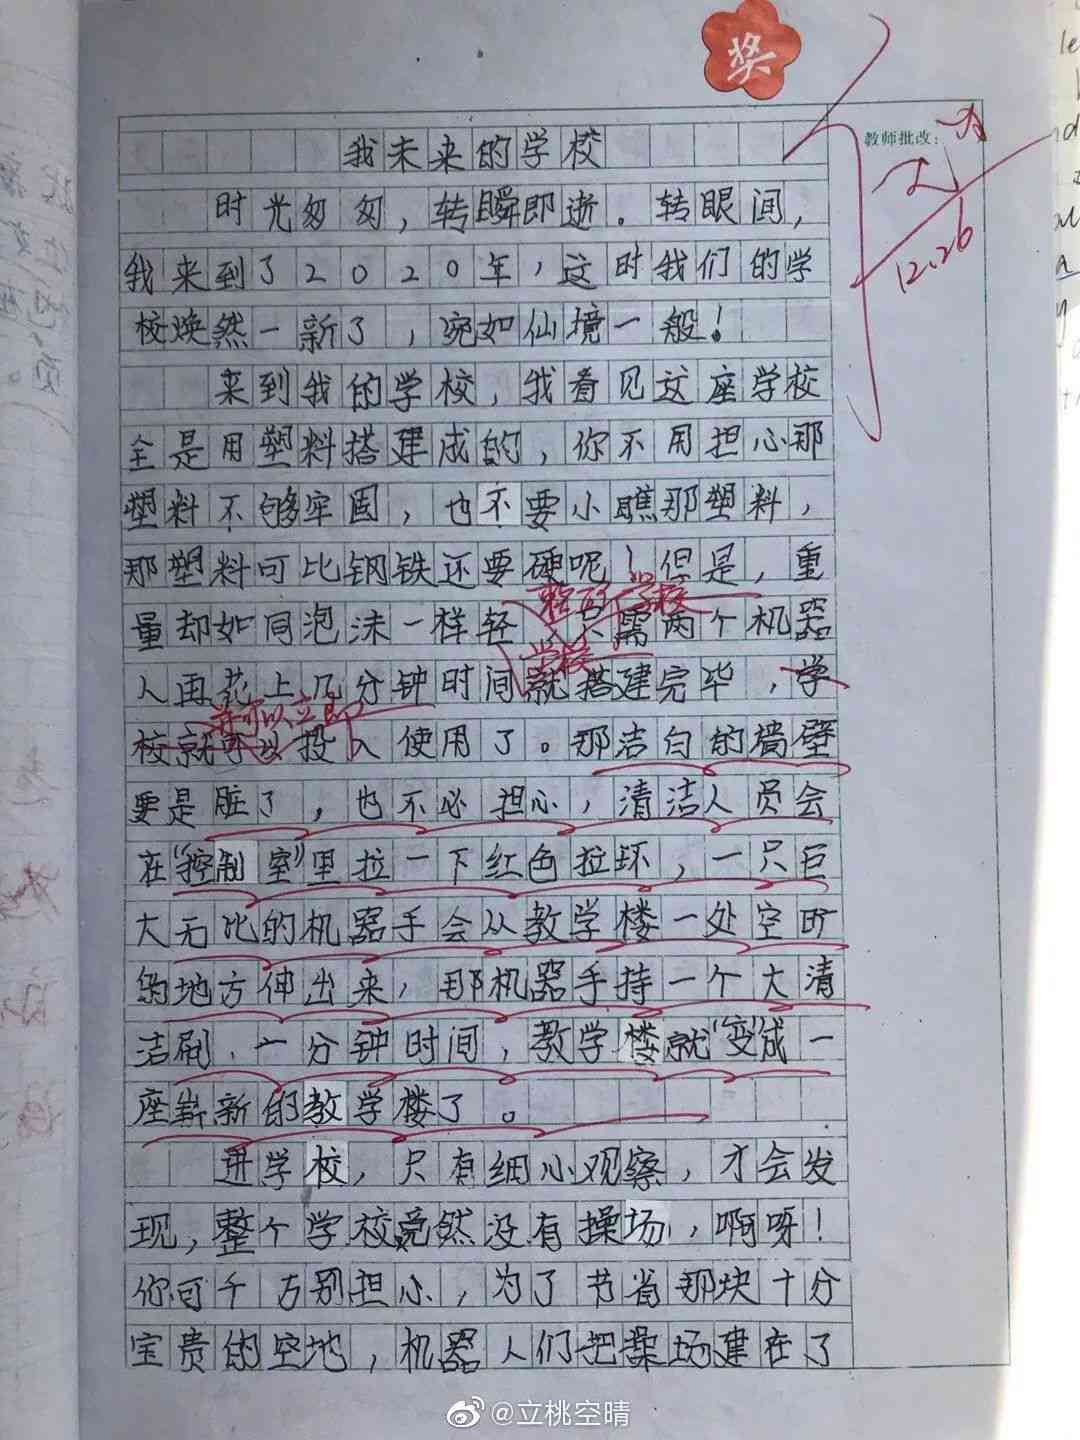 奖
教师批改：
12.26
我未来的学校
时光匆匆，转瞬即逝。转眼间，
我来到了2020年，这时我们的学
校焕然一新了，宛如仙境一般！
来到我的学校，我看见这座学校
全是用塑料搭建成的，你不用担心那
塑料不够牢固，也不要小瞧那塑料，
那塑料可比钢铁还要硬呢！但是，重
整所学校
量却如同泡沫一样轻，只需两个机器
学校
人再花上几分钟时间就搭建完毕，学
并可以立即
校就可以投入使用了。那洁白的墙壁
要是脏了，也不必担心，清洁人员会
在“控制室”里拉一下红色拉环，一只巨
大无比的机器手会从教学楼一处空旷
的地方伸出来，那机器手持一个大清
洁刷，一分钟时间，教学楼就“变”成一
座崭新的教学楼了。
进学校，只有细心观察，才会发
现，整个学校竟然没有操场，啊呀！
你可千万别担心，为了节省那块十分
宝贵的空地，机器人们把操场建在了
@立桃空晴